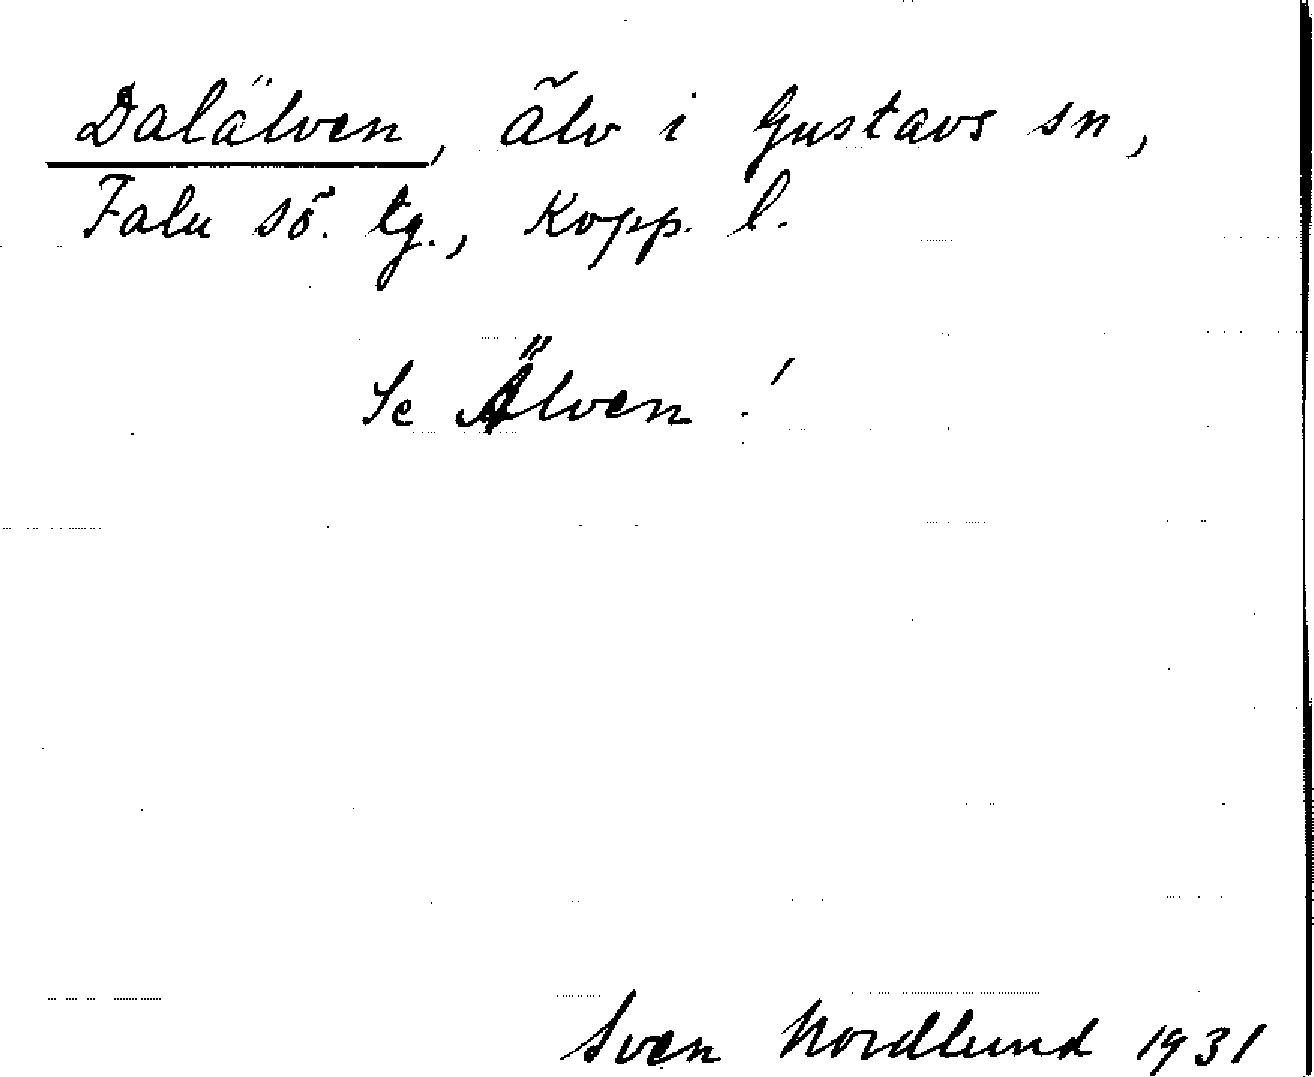 Dalälven, älv i Gustavs sn,
Falu sö. tg., Kopp. l.
Se Älven!
Sven Nordlund 1931